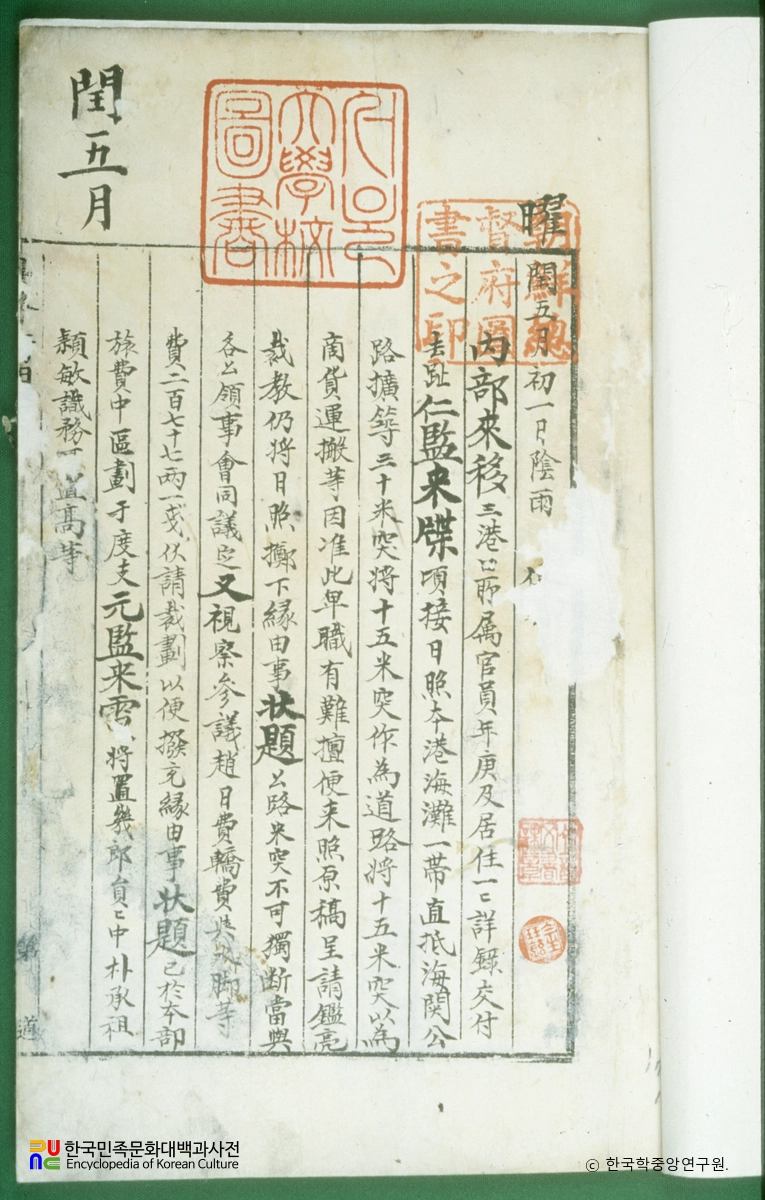 閏五月
曜
閏五月初一日陰雨
內部來移三港口所属官員年庚及居住一〻詳錄交付
去趾仁監来牒頃接日照本港海灘一帶直抵海関公
路擴築三十米突將十五米突作為道路將十五米突以為
商貨運搬等因准此卑職有難擅便来照原稿呈請鑑亮
裁教仍将日照擲下緣由事状題公路米突不可獨断當與
各公領事會同議定又視察參議趙日費轎費與
脚等
費二百七十七兩一戔伏請裁劃以便撥充緣由事状題已於本部
旅費中區劃于度支元監来雪
將置幾郎員〻中朴承祖
頴敏識務
道高等
朝鮮總
督府圖
書之印
大學校
圖書
한국민족문화대백과사전
Encyclopedia of Korean Culture
ⓒ 한국학중앙연구원.